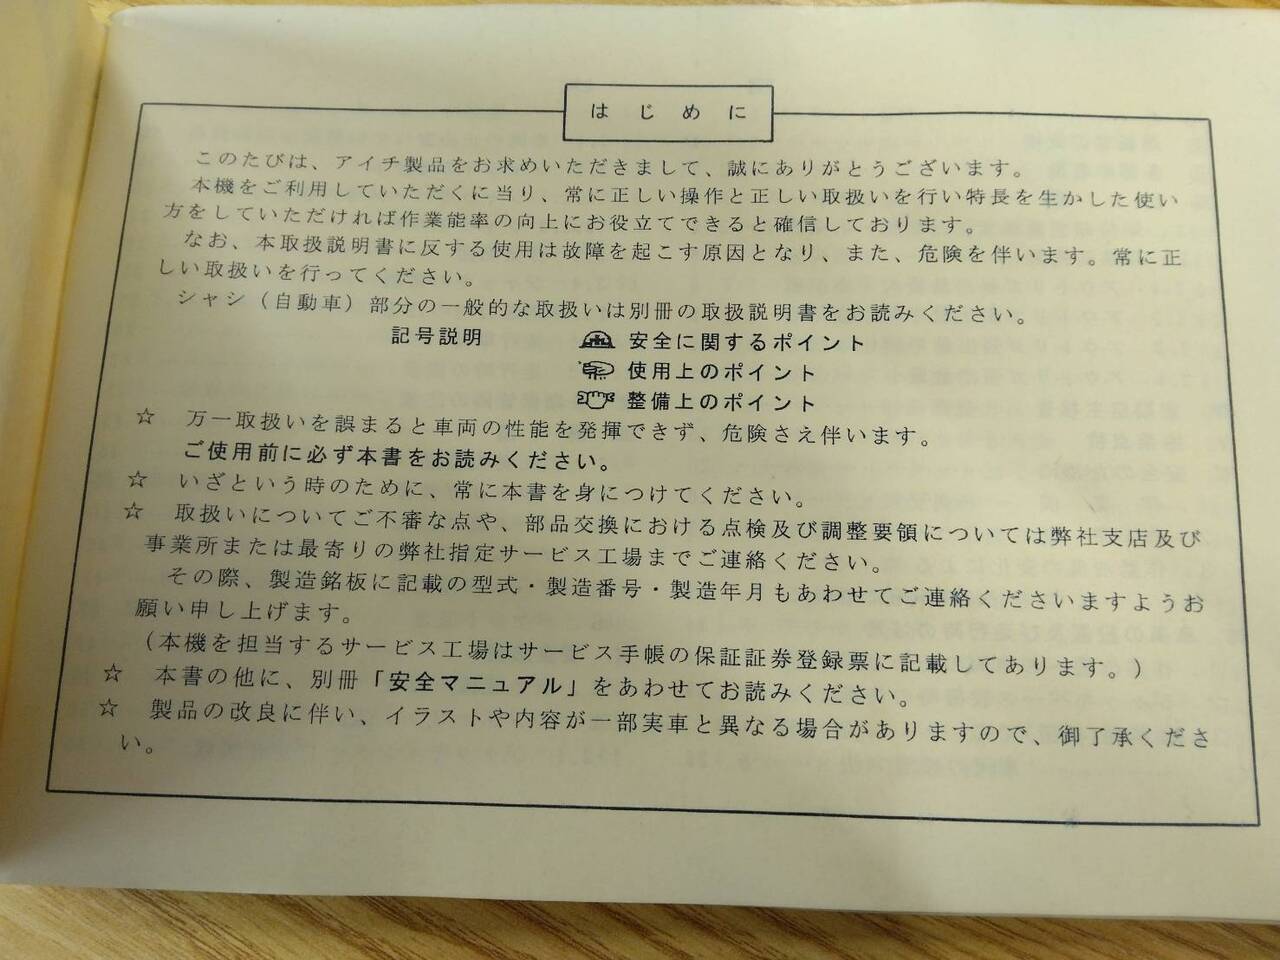 はじめに
このたびは、アイチ製品をお求めいただきまして、誠にありがとうございます。
本機をご利用していただくに当り、常に正しい操作と正しい取扱いを行い特長を生かした使い
方をしていただければ作業能率の向上にお役立てできると確信しております。
なお、本取扱説明書に反する使用は故障を起こす原因となり、また、危険を伴います。常に正
しい取扱いを行ってください。
シャシ（自動車）部分の一般的な取扱いは別冊の取扱説明書をお読みください。
記号説明 安全に関するポイント
使用上のポイント
整備上のポイント
☆ 万一取扱いを誤まると車両の性能を発揮できず、危険さえ伴います。
ご使用前に必ず本書をお読みください。
☆ いざという時のために、常に本書を身につけてください。
☆ 取扱いについてご不審な点や、部品交換における点検及び調整要領については弊社支店及び
事業所または最寄りの弊社指定サービス工場までご連絡ください。
その際、製造銘板に記載の型式・製造番号・製造年月もあわせてご連絡くださいますようお
願い申し上げます。
（本機を担当するサービス工場はサービス手帳の保証証券登録票に記載してあります。）
☆ 本書の他に、別冊「安全マニュアル」をあわせてお読みください。
☆ 製品の改良に伴い、イラストや内容が一部実車と異なる場合がありますので、御了承くださ
い。